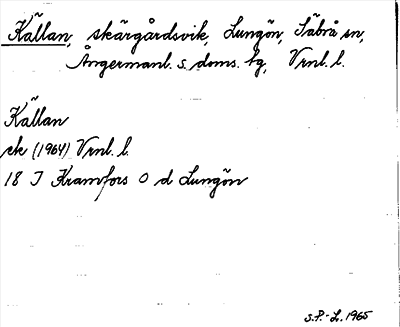 Källan, skärgårdsvik, Lungön, Säbrå sn,
Ångermanl. s. doms. bg, Vrnl. l.
Källan
ek (1964) Vrnl. l.
18 I Kramfors O d Lungön
S.P.-L. 1965